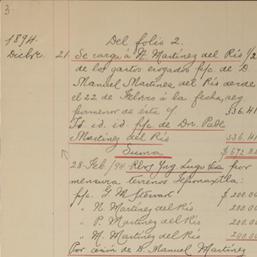 3
1894. Del folio 2.
Dicbre. 21 Se carga á N. Martinez del Rio 1/2
de los gastos erogados p/c. de D.
Manuel Martinez del Rio desde
el 22 de Febrero á la fecha, seg
pormenor de este y
Id. id. id. p/c. de Don Pablo
Martinez del Rio 336.41
Suma $ 672.82
28 Feb/94. por
mensura terrenos
p/c. G. M. Stewart $ 200.00
" N. Martinez del Rio " 200.00
" P. Martinez del Rio 200.00
" M. Martinez del Rio 200.00
Por cesión de D. Manuel Martinez